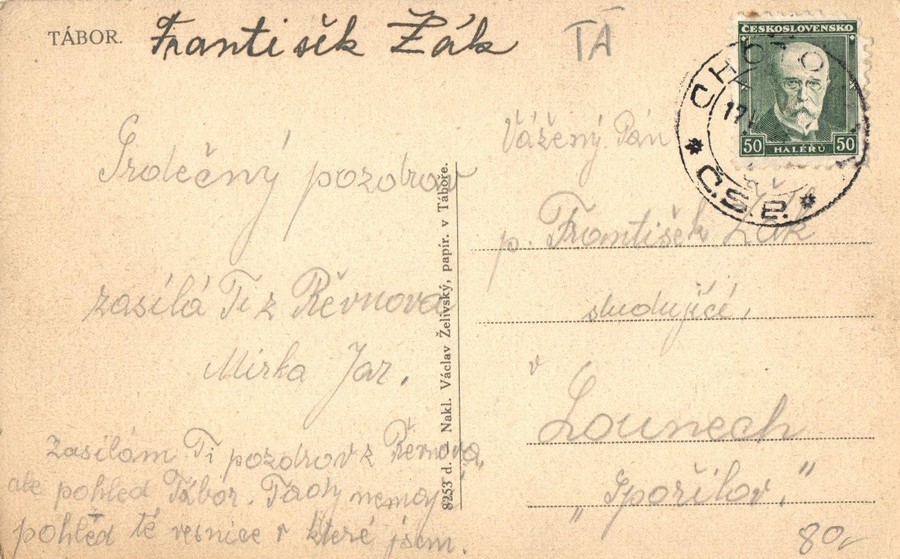 TÁBOR.
František Žák
TÁ
ČESKOSLOVENSKO
50 HALÉŘŮ 50
CHOTO
17.V
Č.S.P.
Srdečný pozdrav
zasílá Ti z Řevnova
Mirka Jar.
Zasílám Ti pozdrav z Řevnova,
ale pohled Tábor. Tady nemají
pohled té vesnice v které jsem.
8253 d. Nakl. Václav Želivský, papír. v Táboře.
Vážený Pán
p. František Žák
studující,
v
Lounech
„Spořilov."
80